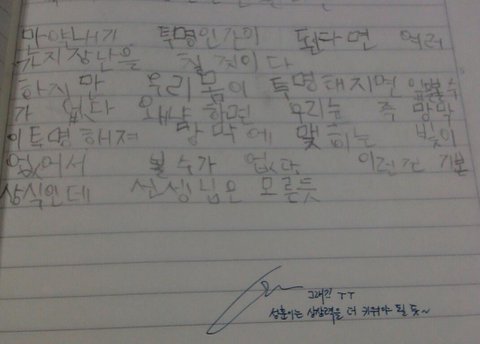 만약내가 투명인간이 된다면 여러
가지장난을 칠 것이다
하지만 우리 몸이 투명해지면 앞을볼수
가 없다 왜냐하면 우리눈 즉 망막
이투명해져 망막에 맺히는 빛이
없어서 볼수가 없다. 이런건 기본
상식인데 선생님은 모른듯
그래긴 ㅜㅜ
성훈이는 상상력을 더 키워야 될 듯~